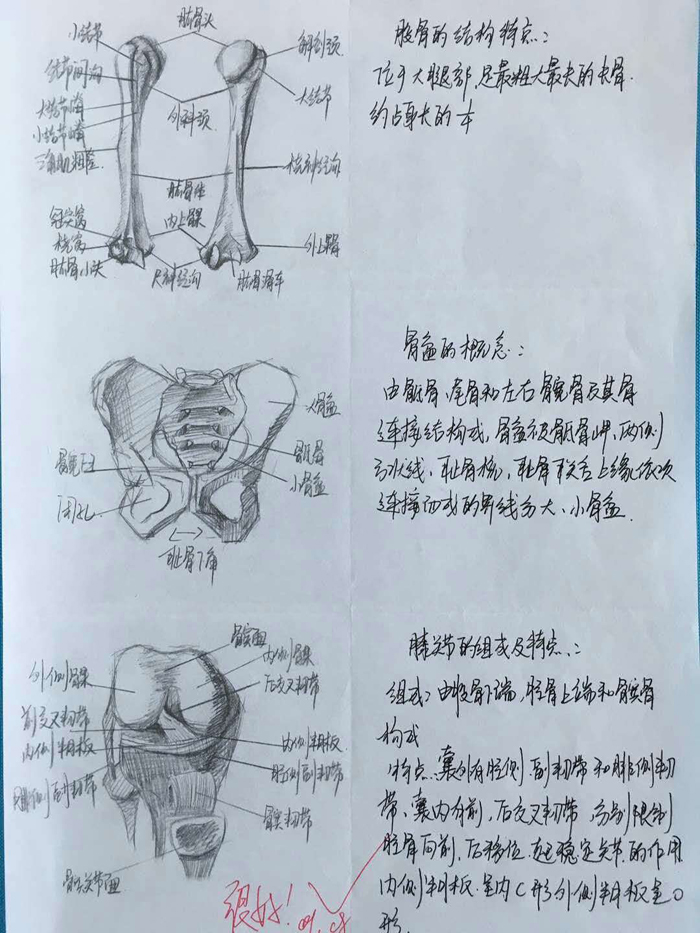 小结节
肱骨头
解剖颈
结节间沟
大结节
大结节嵴
外科颈
小结节嵴
三角肌粗隆
桡神经沟
肱骨体
内上髁
冠突窝
外上髁
桡窝
肱骨小头
尺神经沟
肱骨滑车
股骨的结构特点:
位于大腿部,是最粗大最长的长骨.
约占身长的
大骨盆
骶骨
髋臼
小骨盆
闭孔
耻骨下角
骨盆的概念:
由骶骨、尾骨和左右髋骨及其骨
连接结构成,骨盆 骶骨岬、两侧
弓状线、耻骨梳、耻骨联合上缘依次
连接而成的界线分大、小骨盆.
髌面
外侧髁
内侧髁
后交叉韧带
前交叉韧带
内侧半月板
外侧半月板
胫侧副韧带
腓侧副韧带
髌韧带
髌关节面
膝关节的组成及特点:
组成:由股骨下端,胫骨上端和髌骨
构成
特点:囊外有胫侧副韧带和腓侧韧
带、囊内有前,后交叉韧带,分别限制
胫骨向前,后移位.起稳定关节的作用
内侧半月板呈内C形外侧半月板呈O
形.
很好!